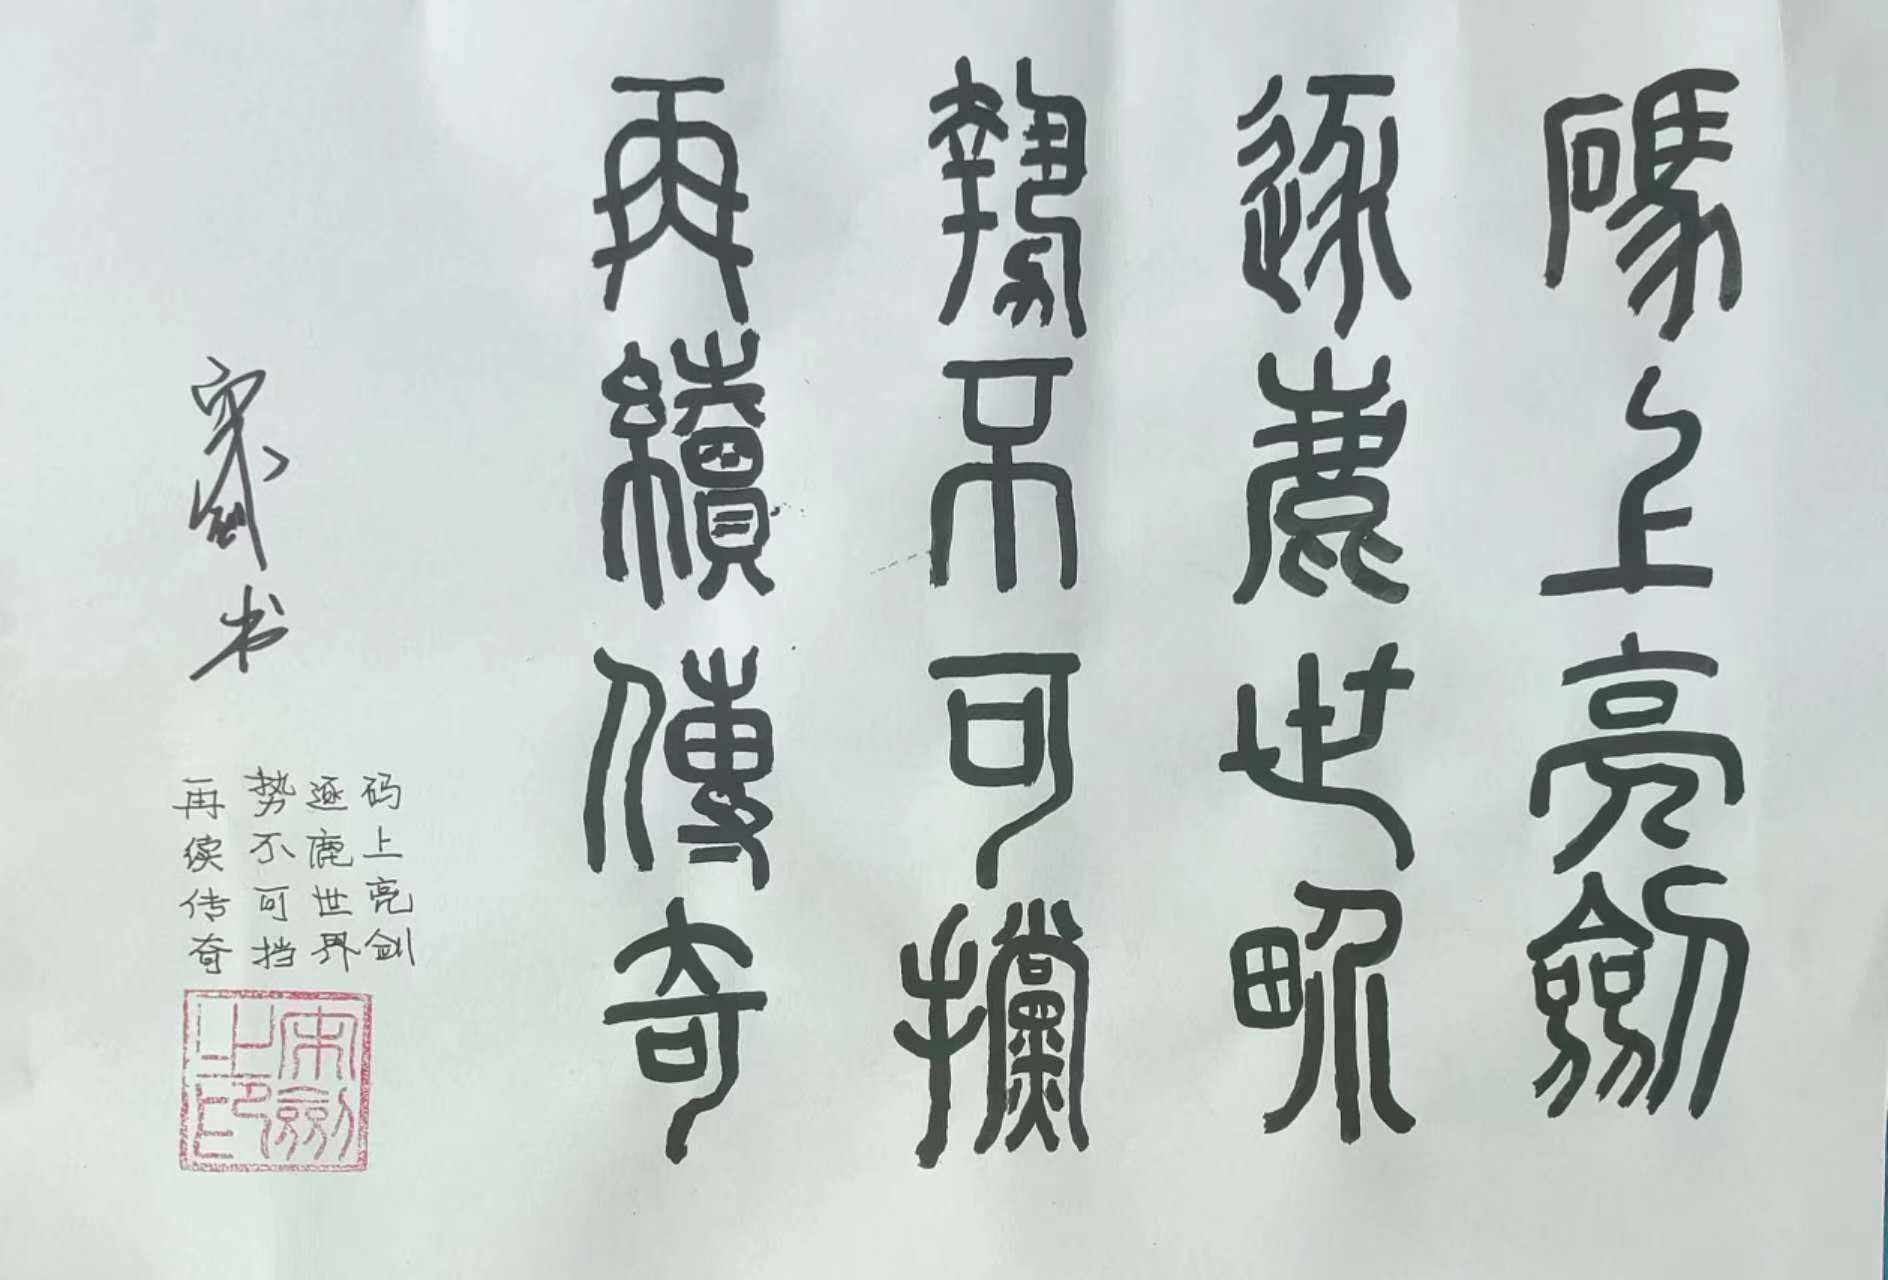 碼上亮劍
逐鹿世界
勢不可攩
再續傳奇
宋剑书
码上亮剑
逐鹿世界
势不可挡
再续传奇
宋劍之印